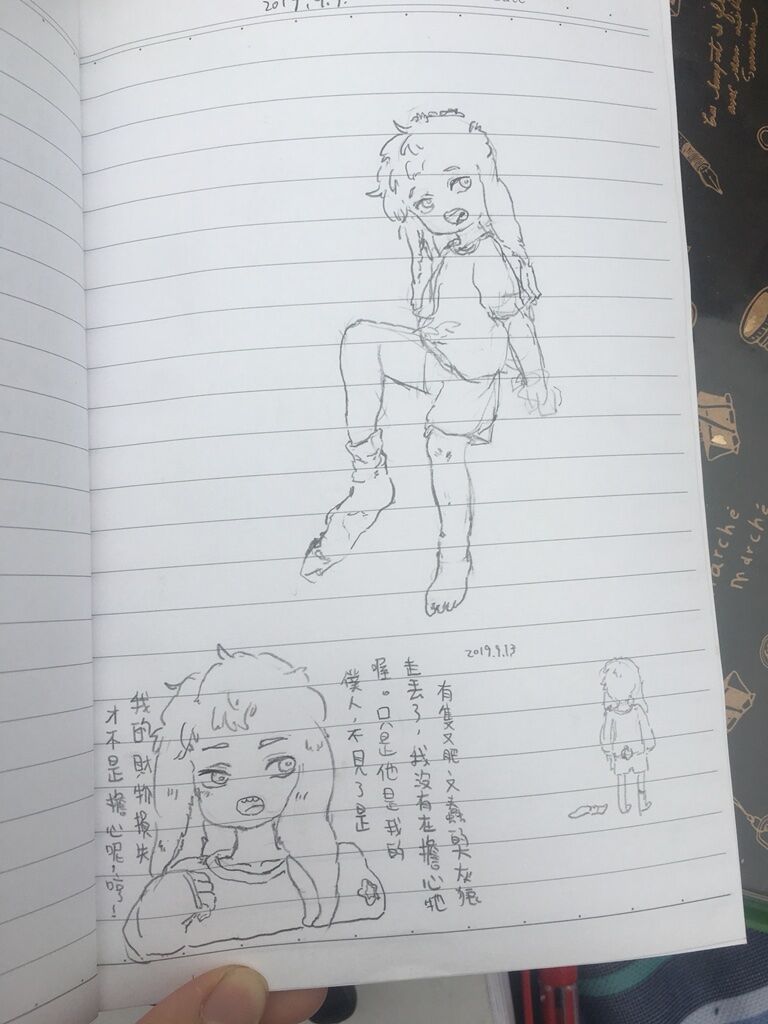 2019.9.13
有隻又肥又蠢的大灰狼
走丟了，我沒有在擔心牠
喔。只是他是我的
僕人，不見了是
我的財物損失
才不是擔心呢！哼！
arché
Marché